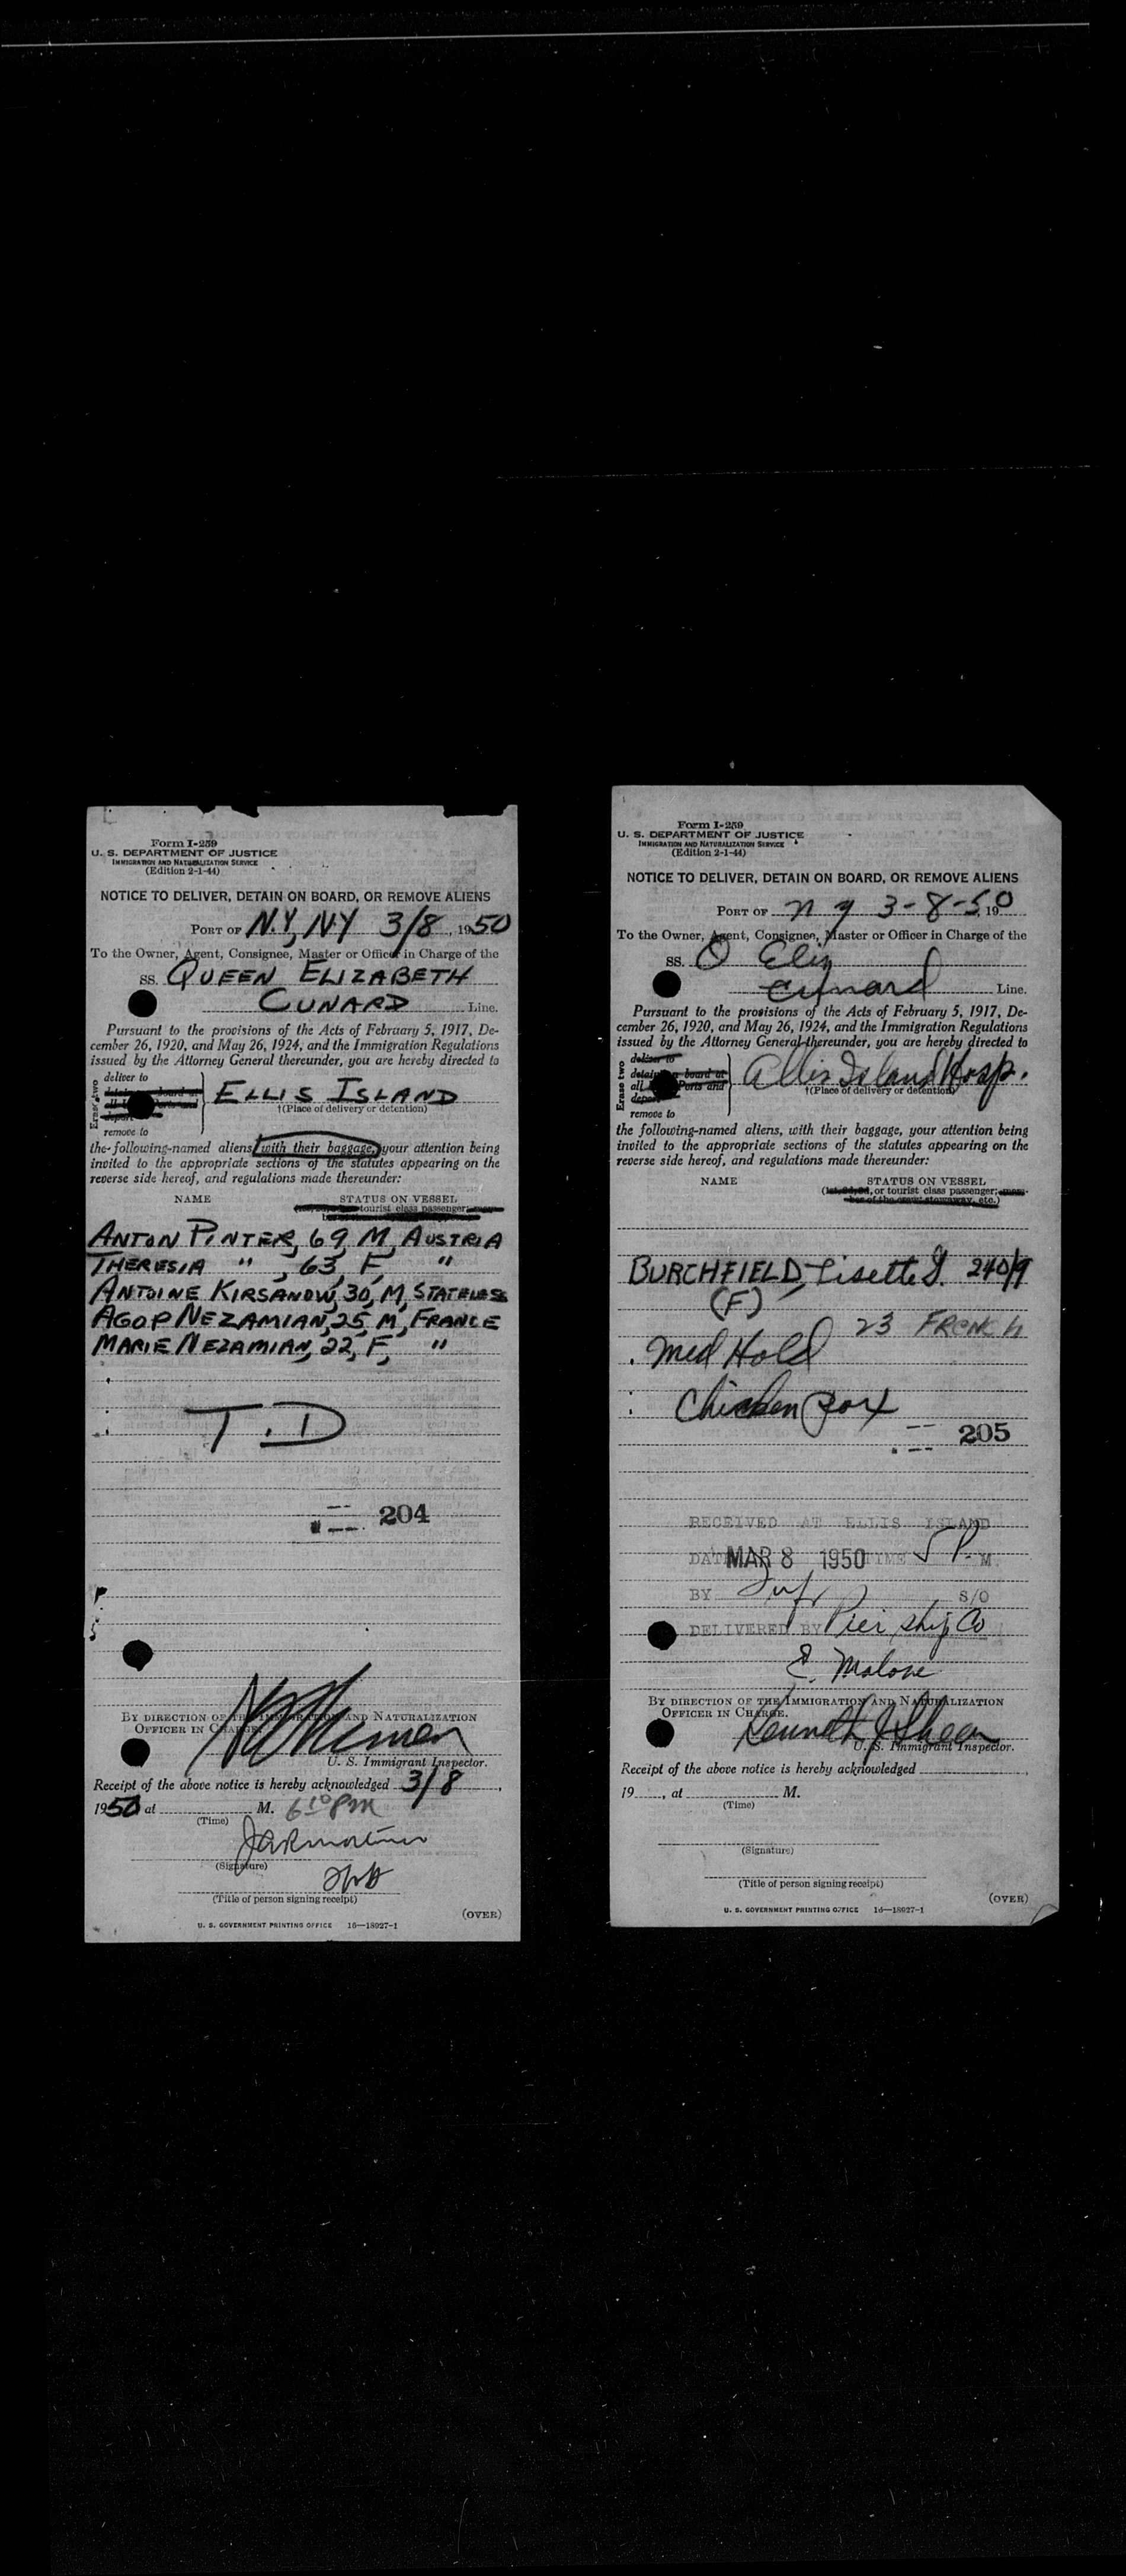 Form I-259
U. S. DEPARTMENT OF JUSTICE
IMMIGRATION AND NATURALIZATION SERVICE
(Edition 2-1-44)
NOTICE TO DELIVER, DETAIN ON BOARD, OR REMOVE ALIENS
PORT OF N.Y, N.Y 3/8, 1950
To the Owner, Agent, Consignee, Master or Officer in Charge of the
SS. QUEEN ELIZABETH
CUNARD Line.
Pursuant to the provisions of the Acts of February 5, 1917, De-
cember 26, 1920, and May 26, 1924, and the Immigration Regulations
issued by the Attorney General thereunder, you are hereby directed to
Erase two
deliver to
ELLIS ISLAND
†(Place of delivery or detention)
remove to
the following-named aliens, with their baggage, your attention being
invited to the appropriate sections of the statutes appearing on the
reverse side hereof, and regulations made thereunder:
NAME STATUS ON VESSEL
tourist class passenger;
ANTON PINTER, 69, M, AUSTRIA
THERESIA " , 63, F, "
ANTOINE KIRSANOW, 30, M, STATELESS
AGOP NEZAMIAN, 25, M, FRANCE
MARIE NEZAMIAN, 22, F, "
T.D
204
BY DIRECTION OF THE IMMIGRATION AND NATURALIZATION
OFFICER IN CHARGE.
U. S. Immigrant Inspector.
Receipt of the above notice is hereby acknowledged 3/8,
1950 at M. 6:10 PM
(Time)
(Signature)
(Title of person signing receipt)
(OVER)
U. S. GOVERNMENT PRINTING OFFICE 16—18927-1
Form I-259
U. S. DEPARTMENT OF JUSTICE
IMMIGRATION AND NATURALIZATION SERVICE
(Edition 2-1-44)
NOTICE TO DELIVER, DETAIN ON BOARD, OR REMOVE ALIENS
PORT OF n y 3-8-50 19
To the Owner, Agent, Consignee, Master or Officer in Charge of the
SS. Q Eliz
Cunard Line.
Pursuant to the provisions of the Acts of February 5, 1917, De-
cember 26, 1920, and May 26, 1924, and the Immigration Regulations
issued by the Attorney General thereunder, you are hereby directed to
Erase two
deliver to
detain on board at
all Ports and
Ellis Island Hosp.
†(Place of delivery or detention)
remove to
the following-named aliens, with their baggage, your attention being
invited to the appropriate sections of the statutes appearing on the
reverse side hereof, and regulations made thereunder:
NAME STATUS ON VESSEL
(1st, 2d, 3d, or tourist class passenger; mem-
ber of the crew; stowaway, etc.)
BURCHFIELD, Lisette G. 240/9
(F)
23 FRENCH
Med Hold
Chicken Pox
205
RECEIVED AT ELLIS ISLAND
DATE MAR 8 1950 TIME 5 P. M.
BY S/O
DELIVERED BY Pier, Ship Co
E. Malone
BY DIRECTION OF THE IMMIGRATION AND NATURALIZATION
OFFICER IN CHARGE.
Kenneth J Sheen
U. S. Immigrant Inspector.
Receipt of the above notice is hereby acknowledged
19, at M.
(Time)
(Signature)
(Title of person signing receipt)
(OVER)
U. S. GOVERNMENT PRINTING OFFICE 16—18927-1